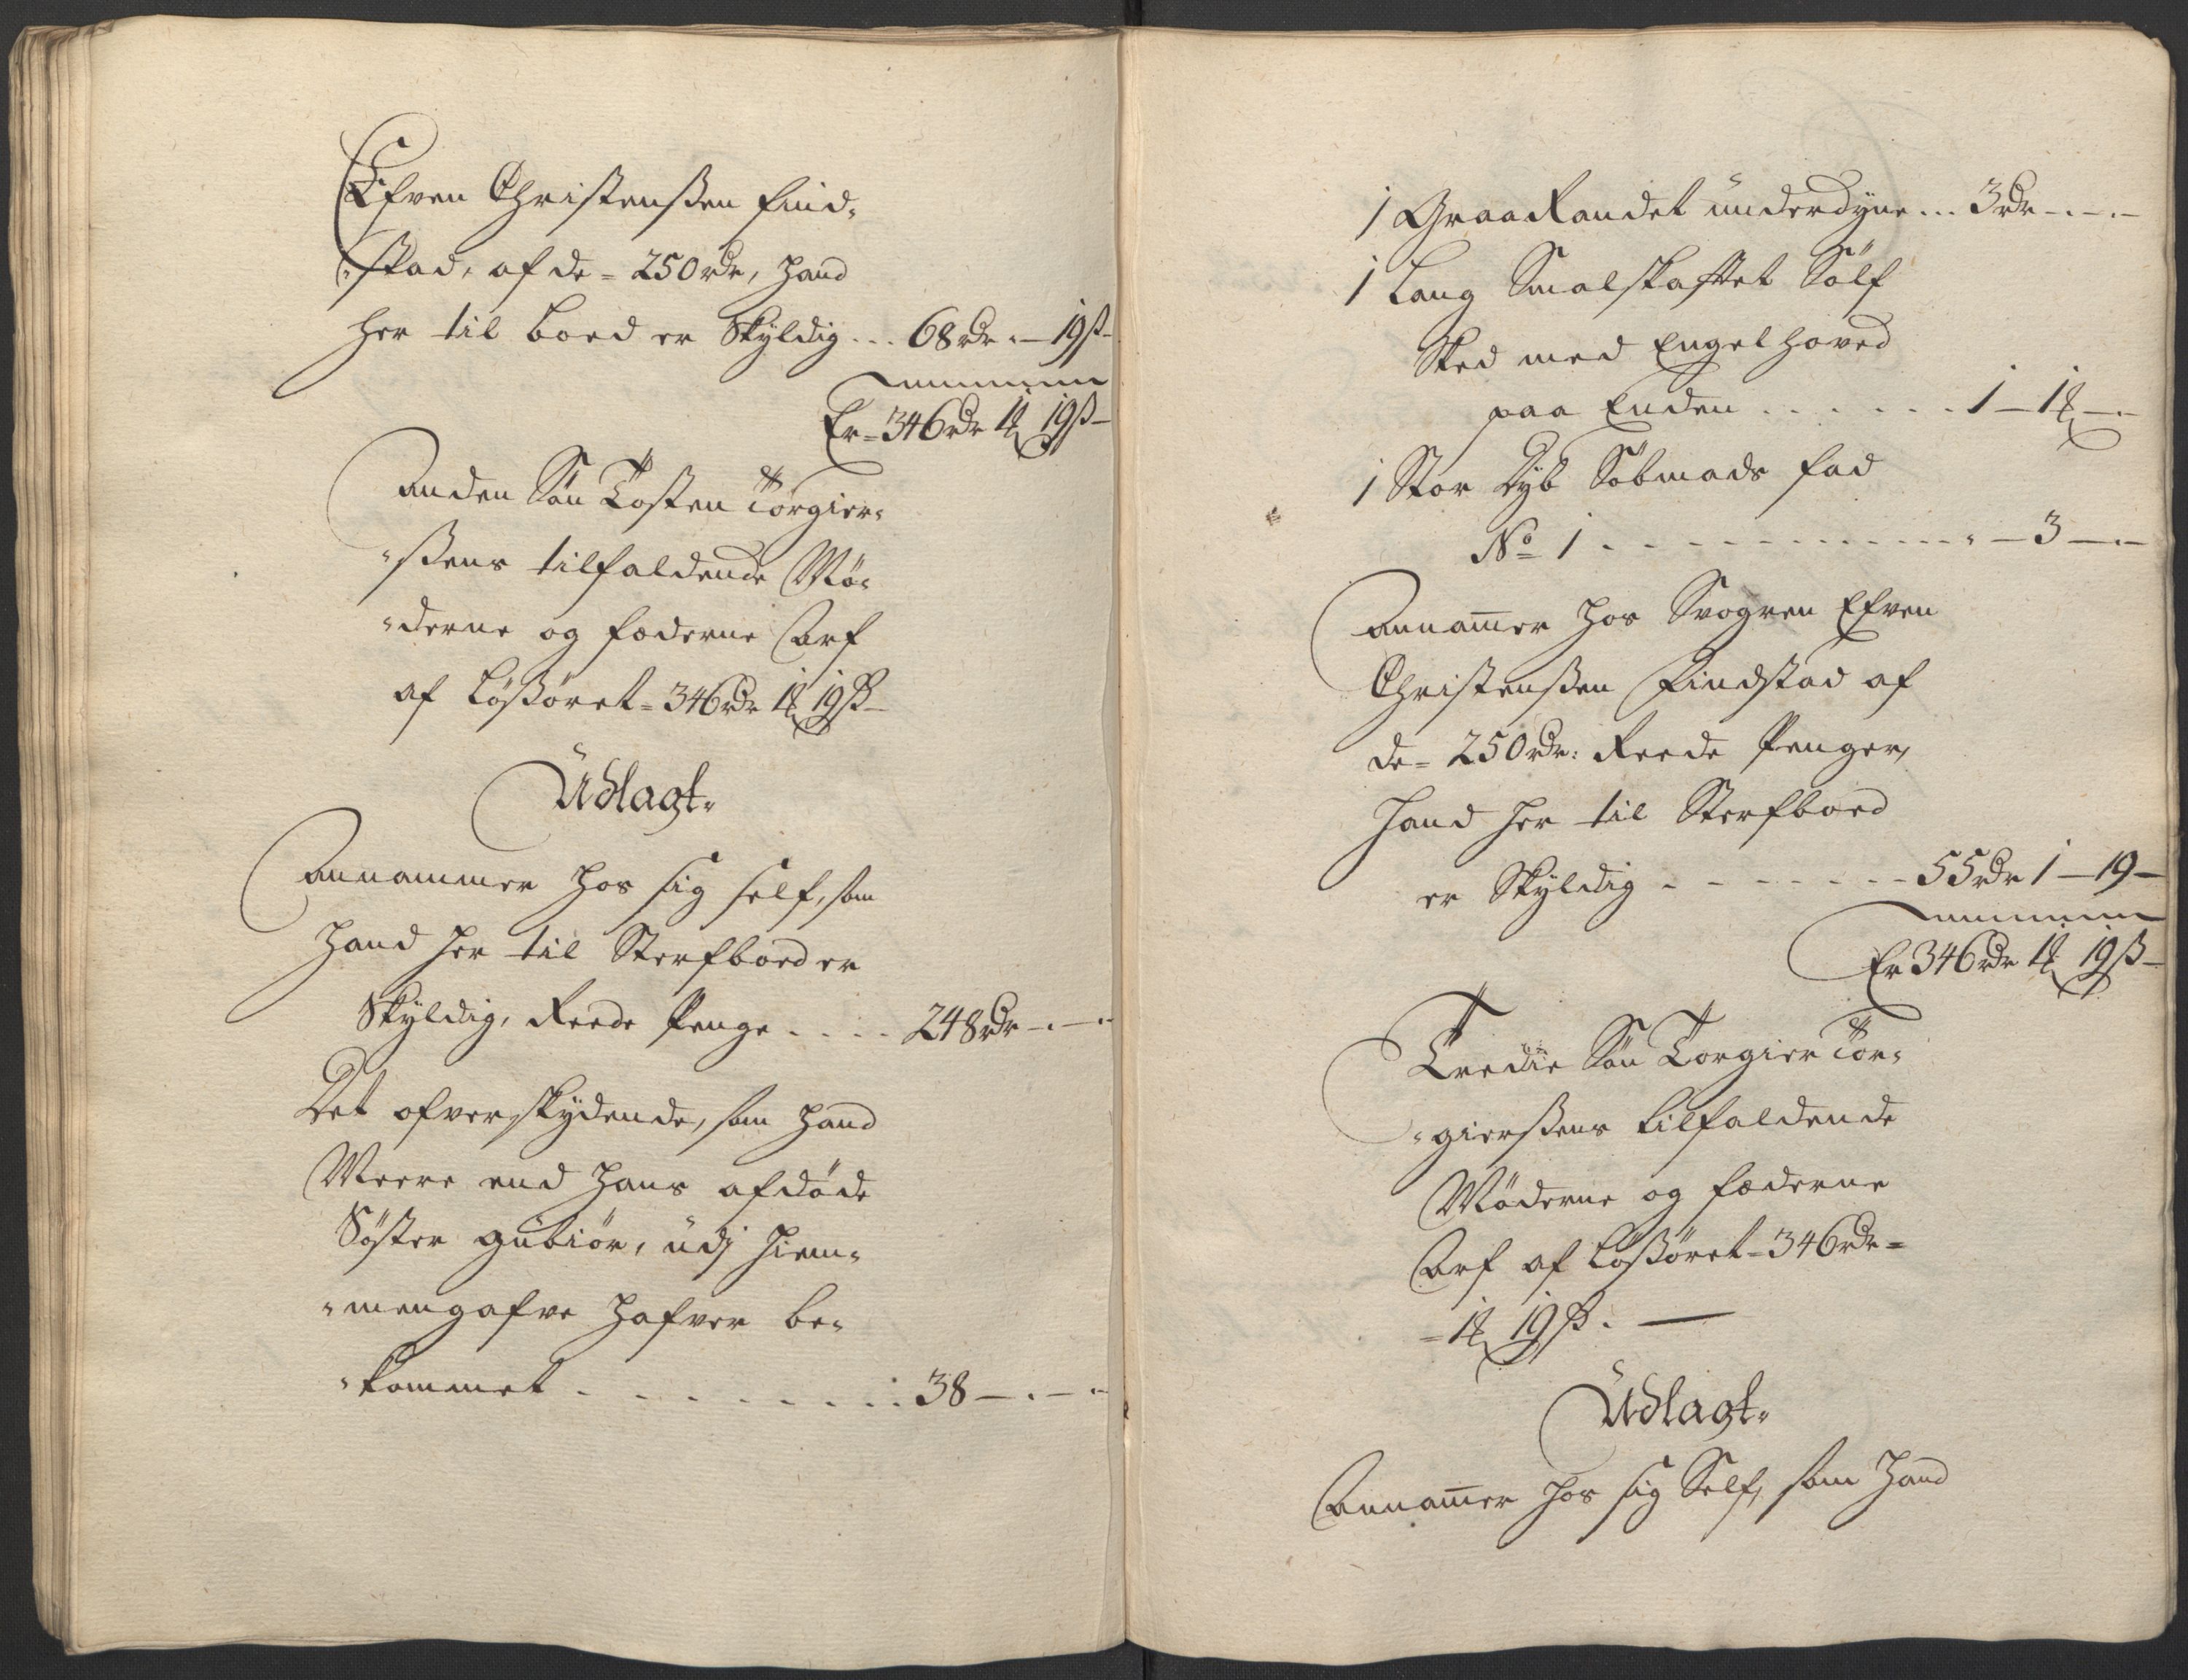 Efven Christenßen find-
-stad, af de = 250 rdr, hand
her til boed er Skyldig ... 68 rdr . – 19 ß –
Er = 346 rdr 1 ꝑ 19 ß –
Anden Søn Tosten Torgier-
-ßens tilfaldende Mø-
-derne og fæderne Arf
af Løßøret = 346 rdr 1 ꝑ 19 ß –
Udlagt.
Annammer hos sig self, som
hand her til Sterfboed er
Skyldig, Reede Penge .... 248 rdr – . – .
Det ofverskydende, som hand
Meere end hans afdøde
Søster Gubiør, udj hiem-
-mengafve hafver be-
-kommet . . . . . . . . 38 – . – .
1 Graa Randet underdyne ... 3 rdr – . – . –
1 Lang Smalskafftet Sølf
Sked med Engel hoved
paa Enden . . . . . . . 1 – 1 ꝑ – . –
1 Stor dyb Søbmads fad
No 1 . . . . . . . . . . . . – 3 – . –
Annam̅er hos Svogren Efven
Christenßen Findstad af
de = 250 rdr: Reede Penger,
hand her til Sterfboed
er Skyldig . . . . . . . 55 rdr 1 – 19 –
Er 346 rdr 1 ꝑ 19 ß –
Tredie Søn Torgier Tor-
-gierßens tilfaldende
Møderne og fæderne
Arf af Løßøret = 346 rdr =
= 1 ꝑ 19 ß . —
Udlagt.
Annam̅er hos sig Self, som hand